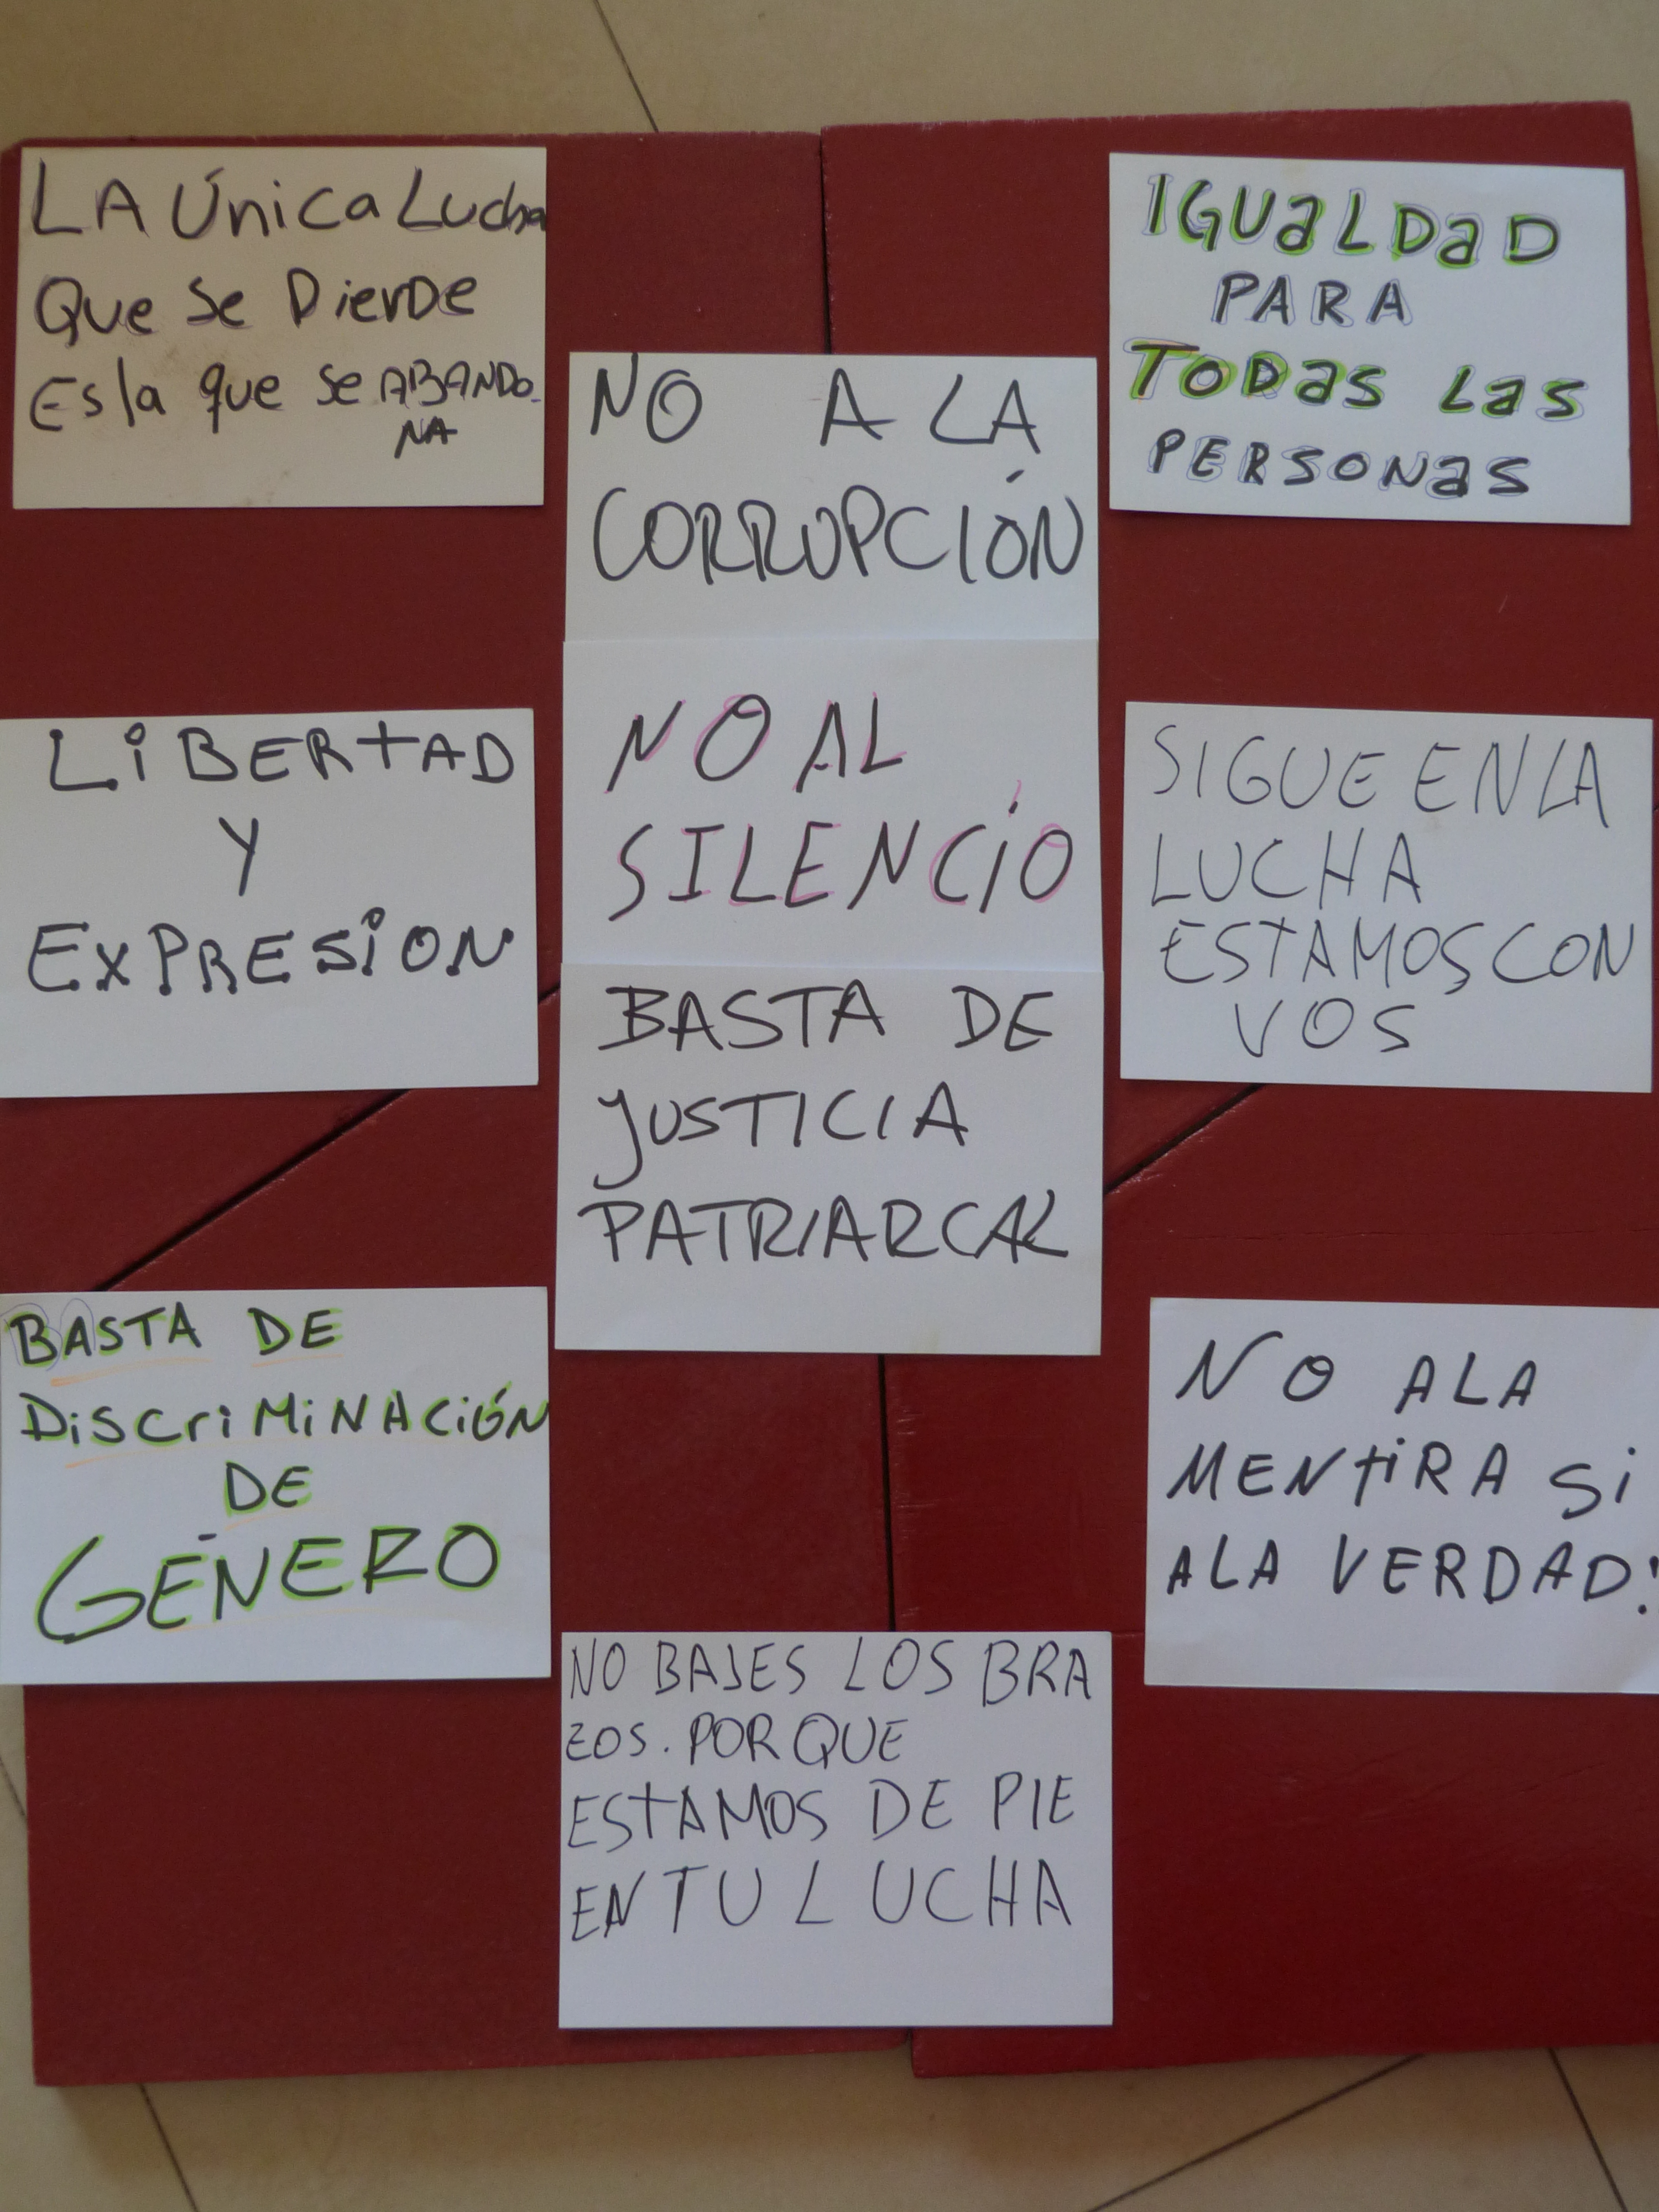 LA Única Lucha
Que Se PierDe
Es la que se ABANDO-
NA
IGUaLDaD
PARA
TODas Las
PERSONas
NO A LA
CORRUPCIÓN
NO AL
SILENCIO
BASTA DE
JUSTICIA
PATRIARCAL
LiBERTAD
Y
EXPRESiON
SIGUE EN LA
LUCHA
ESTAMOS CON
VOS
BASTA DE
DiSCriMiNACiÓN
DE
GÉNERO
NO ALA
MENTiRA Si
ALA VERDAD!
NO BAJES LOS BRA
ZOS. POR QUE
ESTAMOS DE PIE
EN TU LUCHA